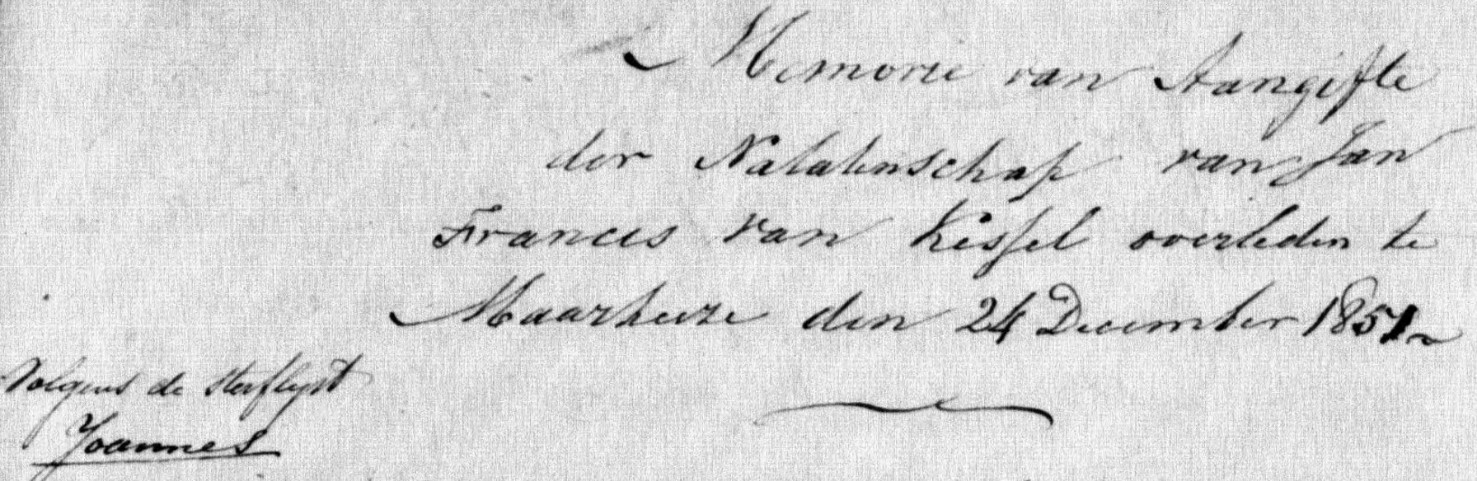 Memorie van Aangifte
der Nalatenschap van Jan
Francis van Kessel overleden te
Maarheeze den 24 December 1851
Volgens de sterflijst
Joannes